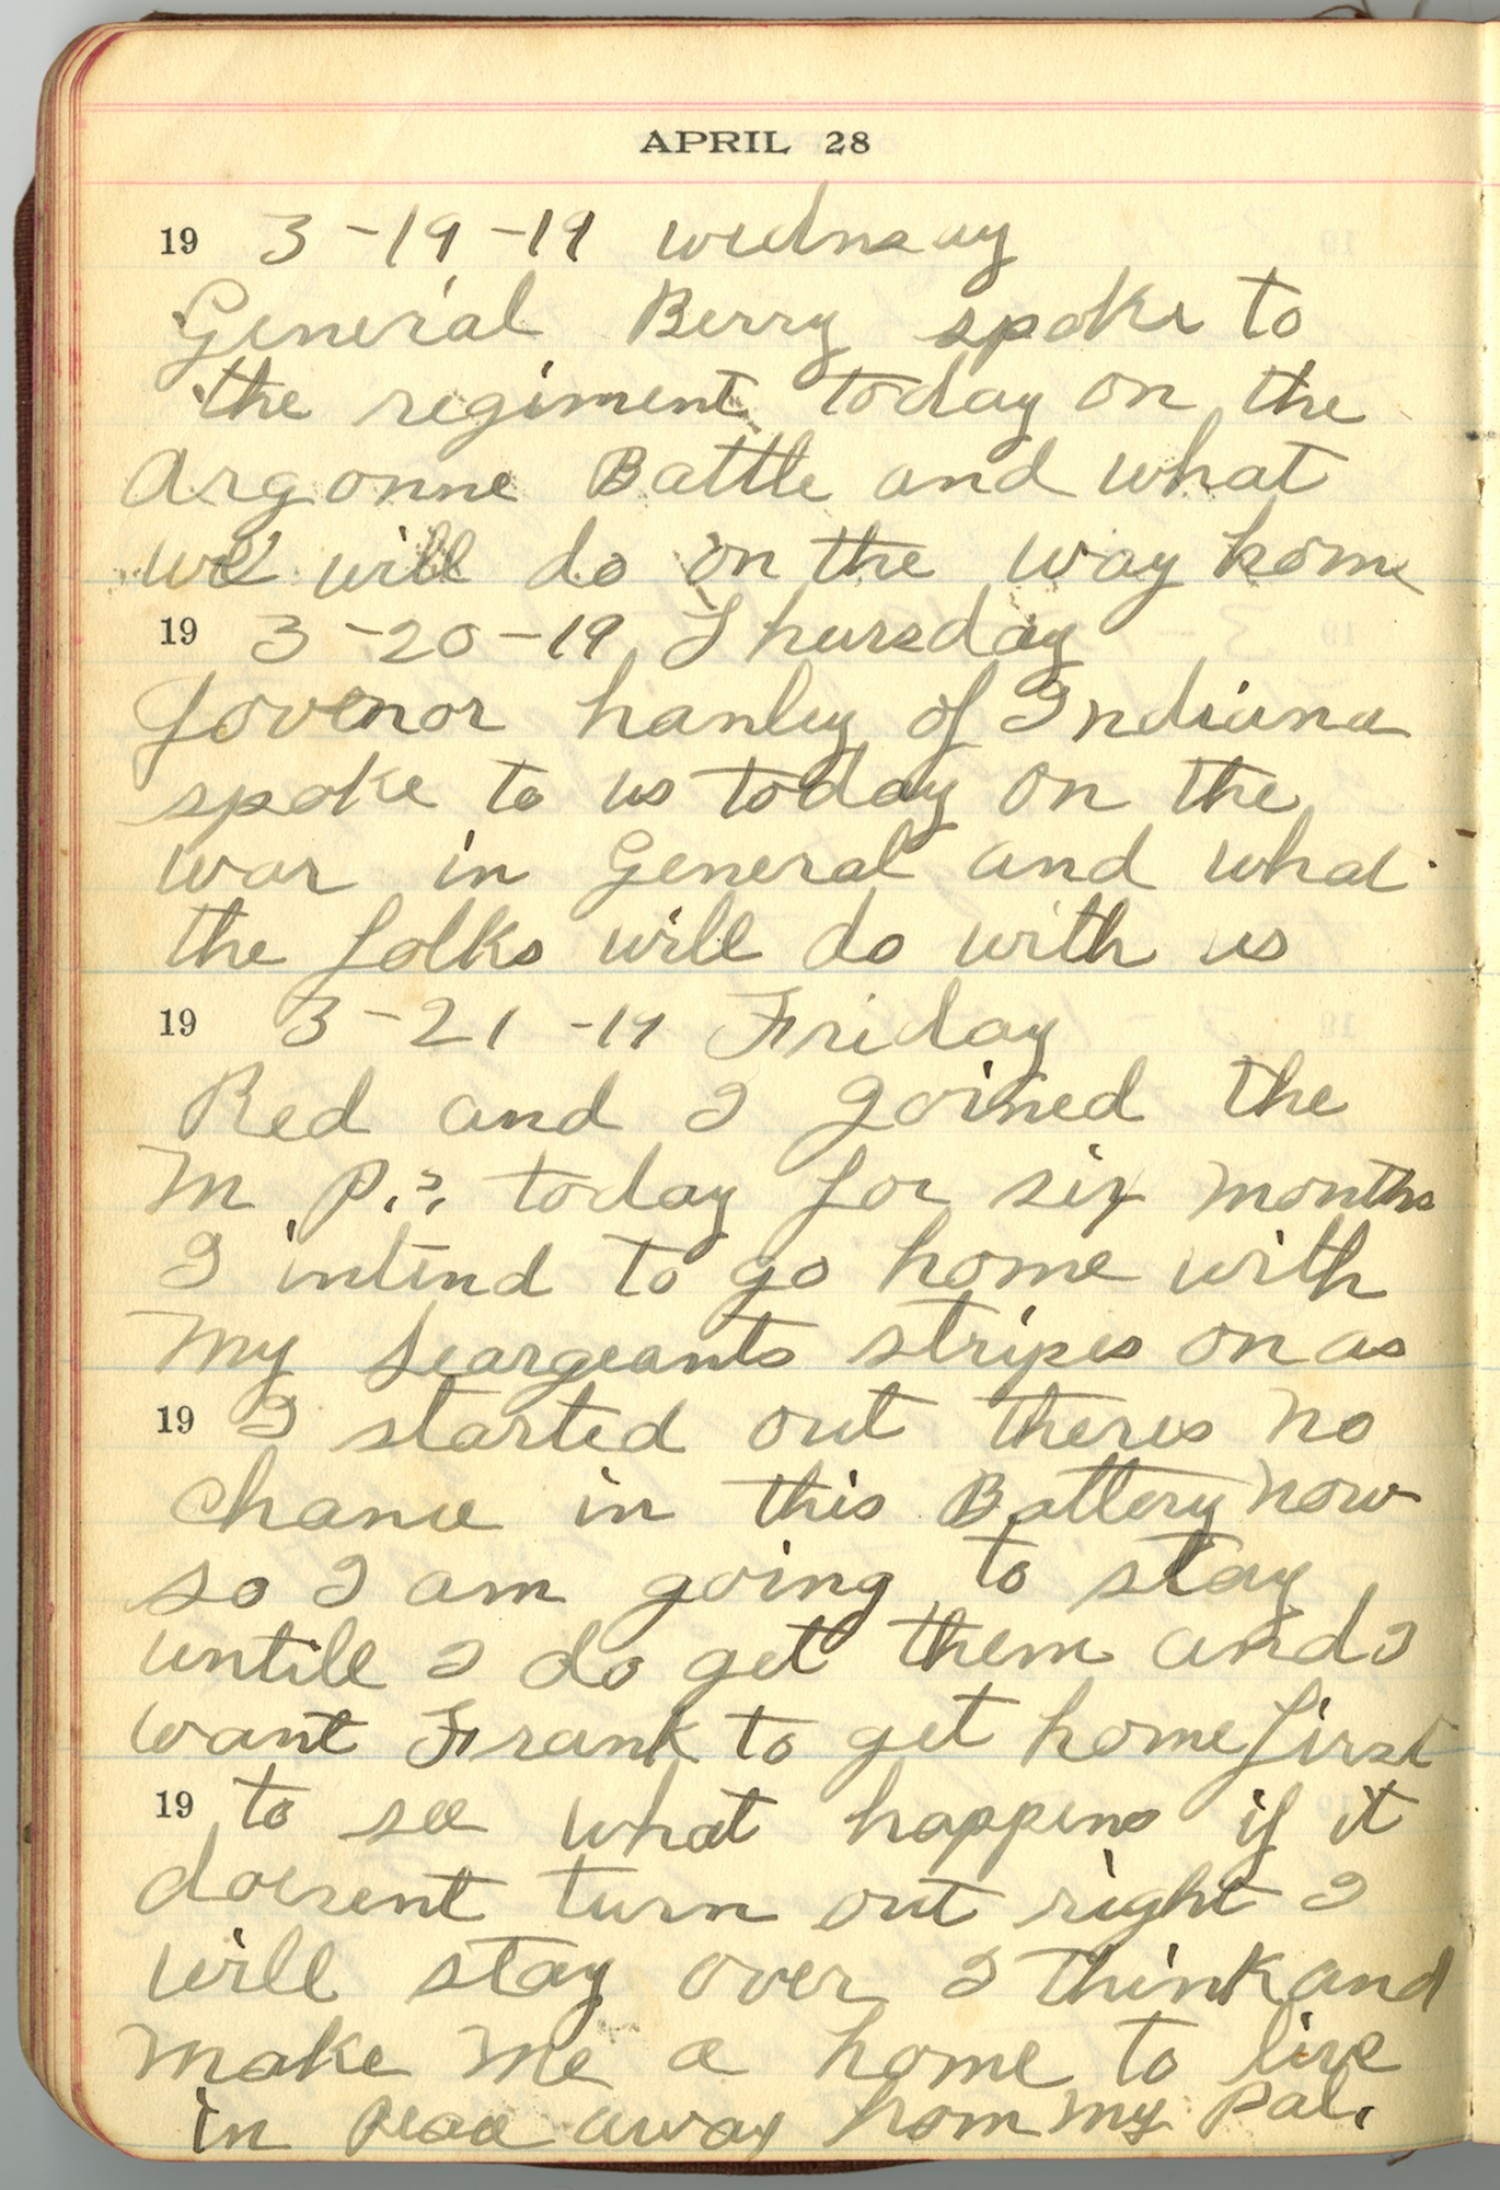 APRIL 28
19 3-19-19 wednsay
General Berry spoke to
the regiment today on the
Argonne Battle and what
we will do on the way home
19 3-20-19 Thursday
Govenor hanley of Indiana
spoke to us today on the
war in General and what
the folks will do with us
19 3-21-19 Friday
Red and I joined the
M P.s. today for six months
I intend to go home with
my seargeants stripes on as
19 I started out theres no
chance in this Battery now
so I am going to stay
untill I do get them and I
want Frank to get home first
19 to see what happens if it
doesent turn out right I
will stay over I think and
make me a home to live
in peac away from my Pal.